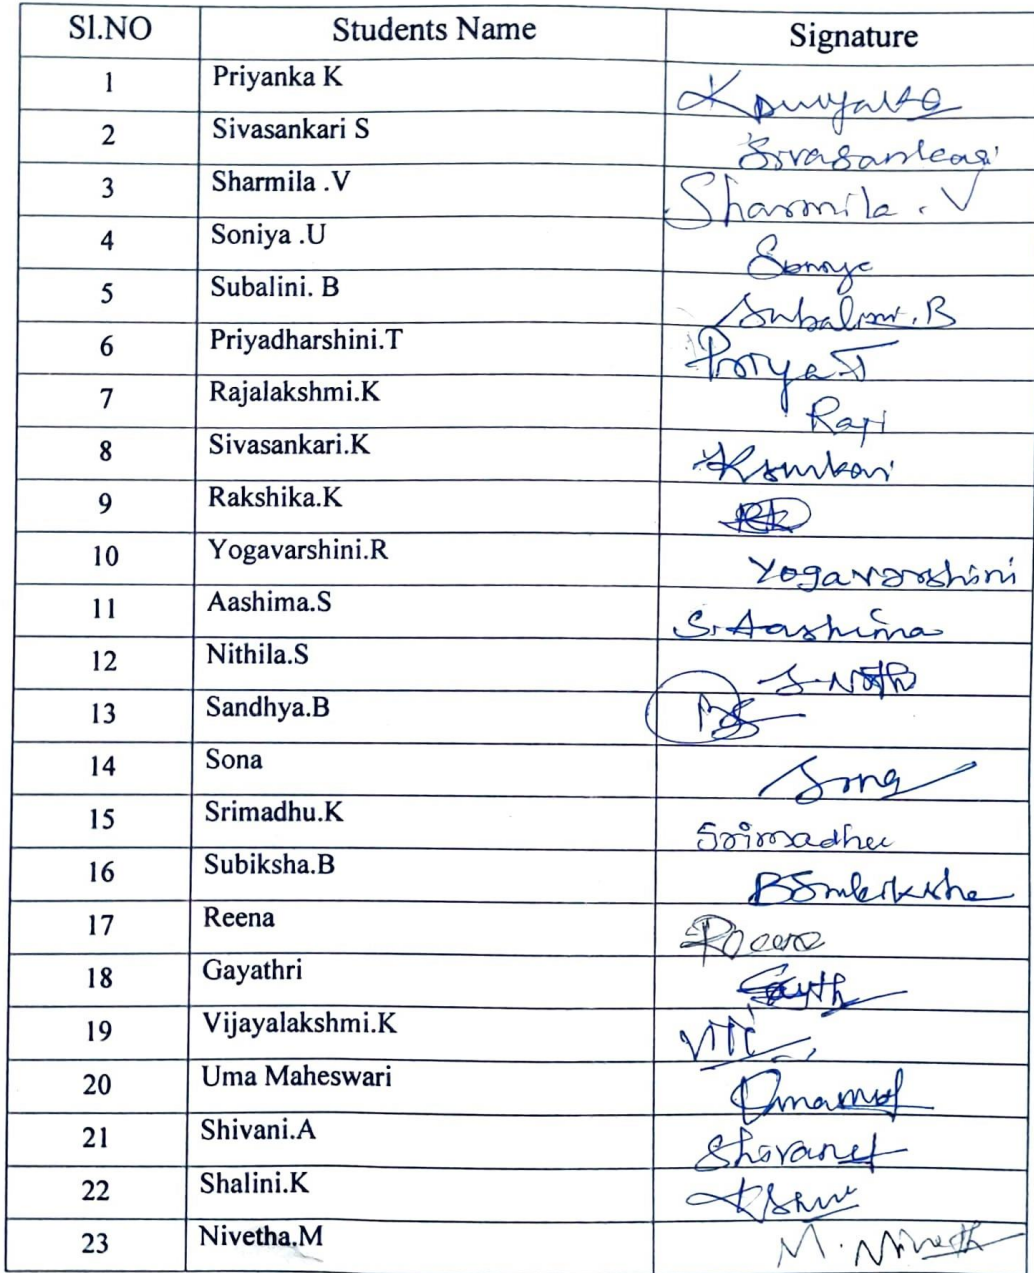 Sl.NO Students Name Signature
1 Priyanka K
2 Sivasankari S Sivasankari
3 Sharmila .V Sharmila . V
4 Soniya .U Soniya
5 Subalini. B Subalini. B
6 Priyadharshini.T Priya T
7 Rajalakshmi.K Raji
8 Sivasankari.K
9 Rakshika.K
10 Yogavarshini.R Yogavarshini
11 Aashima.S S. Aashima
12 Nithila.S
13 Sandhya.B
14 Sona Sona
15 Srimadhu.K Srimadhu
16 Subiksha.B
17 Reena
18 Gayathri
19 Vijayalakshmi.K
20 Uma Maheswari
21 Shivani.A
22 Shalini.K
23 Nivetha.M